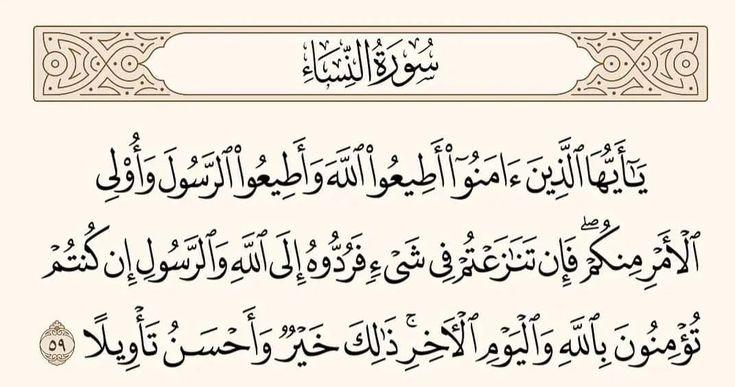 سُورَةُ النِّسَاءِ
يَٰٓأَيُّهَا ٱلَّذِينَ ءَامَنُوٓا۟ أَطِيعُوا۟ ٱللَّهَ وَأَطِيعُوا۟ ٱلرَّسُولَ وَأُو۟لِى
ٱلْأَمْرِ مِنكُمْ ۖ فَإِن تَنَٰزَعْتُمْ فِى شَىْءٍ فَرُدُّوهُ إِلَى ٱللَّهِ وَٱلرَّسُولِ إِن كُنتُمْ
تُؤْمِنُونَ بِٱللَّهِ وَٱلْيَوْمِ ٱلْءَاخِرِ ۚ ذَٰلِكَ خَيْرٌ وَأَحْسَنُ تَأْوِيلًا ٥٩